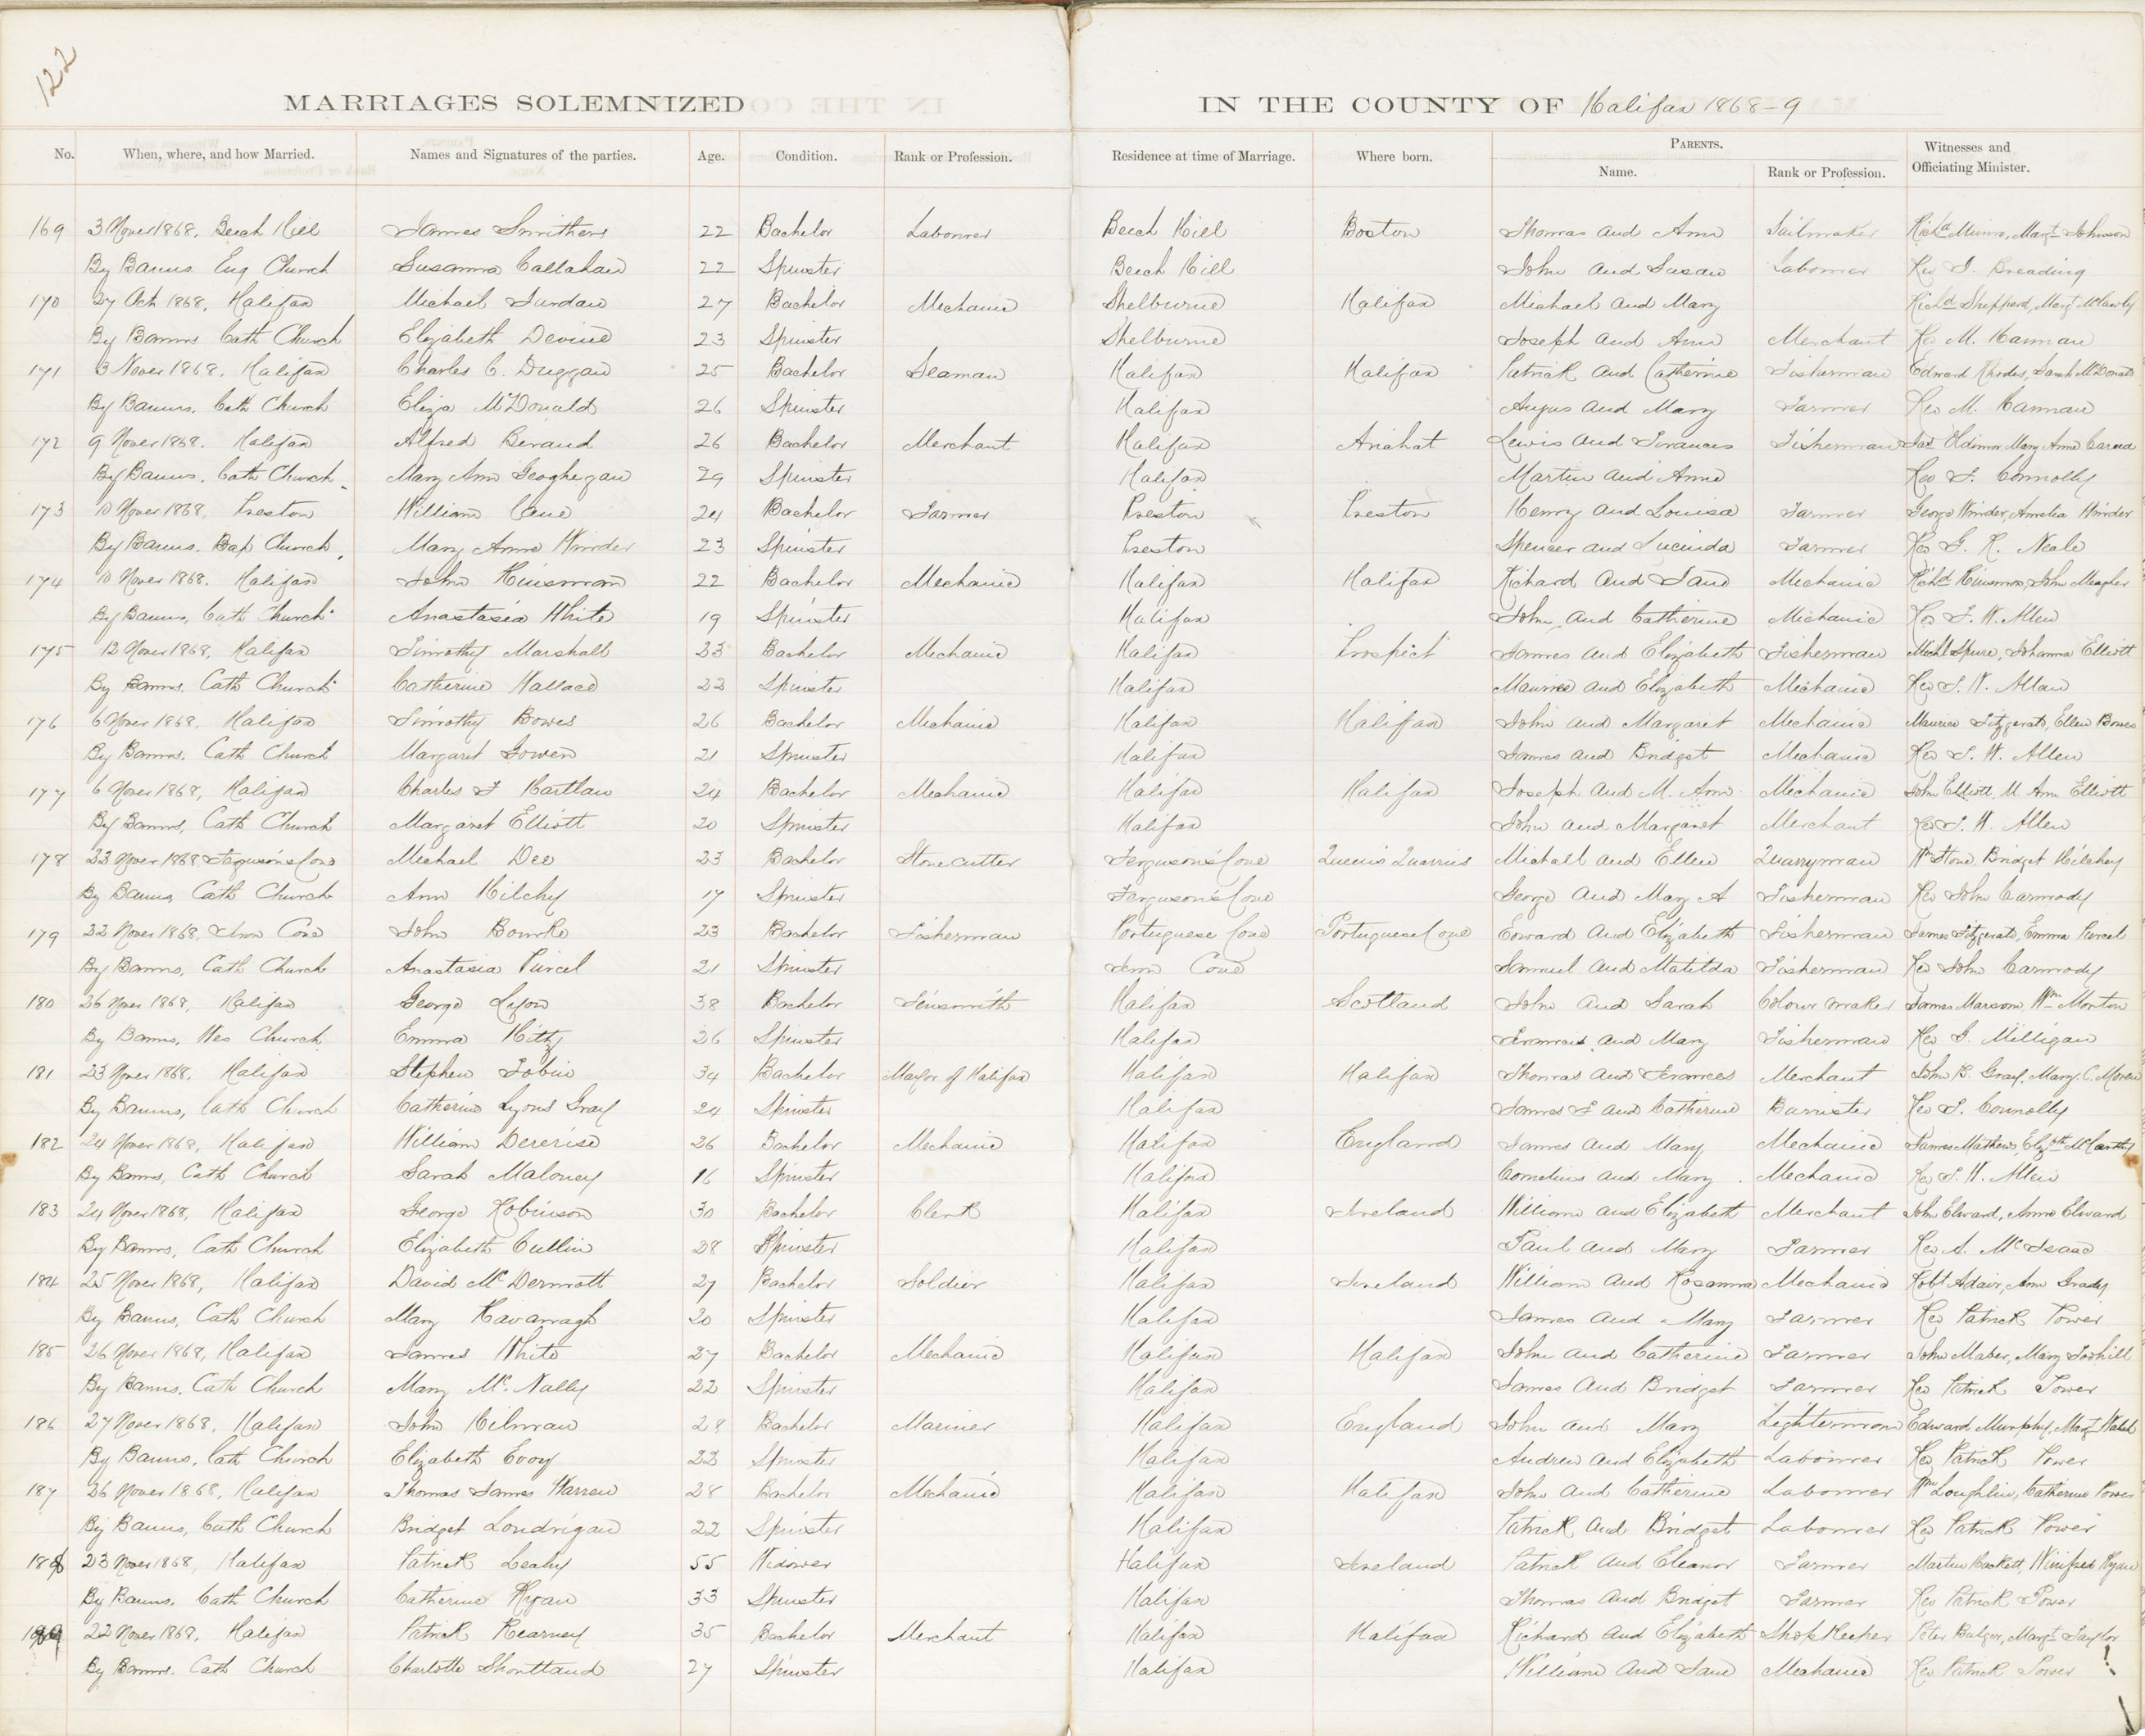 122
MARRIAGES SOLEMNIZED IN THE COUNTY OF Halifax 1868-9
No. When, where, and how Married. Names and Signatures of the parties. Age. Condition. Rank or Profession. Residence at time of Marriage. Where born. PARENTS. Name. Rank or Profession. Witnesses and Officiating Minister.
169 3 Nover 1868, Beech Hill James Smithers 22 Bachelor Labourer Beech Hill Boston Thomas and Ann Sailmaker Richd Munro, Margt Johnson
By Banns Eng Church Susanna Callahan 22 Spinster Beech Hill John and Susan Labourer Rev J. Breading
170 27 Oct 1868, Halifax Michael 27 Bachelor Mechanic Shelburne Halifax Michael and Mary Richd Sheppard, Margt
By Banns Cath Church Elizabeth Devine 23 Spinster Shelburne Joseph and Ann Merchant Rev M. Hannan
171 3 Nover 1868, Halifax Charles C. Duggan 25 Bachelor Seaman Halifax Halifax Patrick and Catherine Fisherman Edward Rhodes, Sarah McDonald
By Banns, Cath Church Eliza McDonald 26 Spinster Halifax Angus and Mary Farmer Rev M. Hannan
172 9 Nover 1868. Halifax Alfred Beraud 26 Bachelor Merchant Halifax Arichat Lewis and Frances Fisherman Mary Anne
By Banns, Cath Church Mary Ann Geoghegan 29 Spinster Halifax Martin and Anne Rev T. Connolly
173 10 Nover 1868, Preston William Cane 24 Bachelor Farmer Preston Preston Henry and Louisa Farmer George Winder, Amelia Winder
By Banns. Bap Church Mary Anne Winder 23 Spinster Preston Spencer and Lucinda Farmer Rev G. R. Neale
174 10 Nover 1868. Halifax John Hinsman 22 Bachelor Mechanic Halifax Halifax Richard and Jane Mechanic Richd Hinsman, John Meagher
By Banns, Cath Church Anastasia White 19 Spinster Halifax John and Catherine Mechanic Rev J. W. Allen
175 12 Nover 1868, Halifax Timothy Marshall 23 Bachelor Mechanic Halifax Prospect James and Elizabeth Fisherman Michl Spure, Johanna Elliott
By Banns, Cath Church Catherine Wallace 22 Spinster Halifax Maurice and Elizabeth Mechanic Rev J. W. Allen
176 6 Nover 1868, Halifax Timothy Bowes 26 Bachelor Mechanic Halifax Halifax John and Margaret Mechanic Maurice Fitzgerald, Ellen Bowes
By Banns, Cath Church Margaret Gowen 21 Spinster Halifax James and Bridget Mechanic Rev J. W. Allen
177 6 Nover 1868, Halifax Charles F Hartlan 24 Bachelor Mechanic Halifax Halifax Joseph and M. Ann Mechanic John Elliott, M. Ann Elliott
By Banns, Cath Church Margaret Elliott 20 Spinster Halifax John and Margaret Merchant Rev J. W. Allen
178 23 Nover 1868 Ferguson's Cove Michael Dee 23 Bachelor Stone cutter Ferguson's Cove Queen's Quarries Michael and Ellen Quarryman Wm Stone, Bridget Hilchey
By Banns, Cath Church Ann Hilchy 17 Spinster Ferguson's Cove George and Mary A Fisherman Rev John Carmody
179 22 Nover 1868, Cove John Bourke 23 Bachelor Fisherman Portuguese Cove Portuguese Cove Edward and Elizabeth Fisherman James Fitzgerald, Emma Purcel
By Banns, Cath Church Anastasia Purcel 21 Spinster Cove Samuel and Matilda Fisherman Rev John Carmody
180 26 Nover 1868, Halifax George Lyon 38 Bachelor Tinsmith Halifax Scotland John and Sarah Colour maker James Marsom, Wm Morton
By Banns, Wes Church Emma Hitz 26 Spinster Halifax Francis and Mary Fisherman Rev G. Milligan
181 23 Nover 1868. Halifax Stephen Tobin 34 Bachelor Mayor of Halifax Halifax Halifax Thomas and Frances Merchant John B. Gray, Mary C. Moren
By Banns, Cath Church Catherine Lyons Gray 24 Spinster Halifax James F and Catherine Barrister Rev T. Connolly
182 24 Nover 1868, Halifax William Dererise 26 Bachelor Mechanic Halifax England James and Mary Mechanic James Mathews, Elizbth McCarthy
By Banns, Cath Church Sarah Maloney 16 Spinster Halifax Cornelius and Mary Mechanic Rev J. W. Allen
183 24 Nover 1868, Halifax George Robinson 30 Bachelor Clerk Halifax Ireland William and Elizabeth Merchant John Elward, Anne Elward
By Banns, Cath Church Elizabeth Cullin 28 Spinster Halifax Paul and Mary Farmer Rev A. McIsaac
184 25 Nover 1868, Halifax David McDermott 27 Bachelor Soldier Halifax Ireland William and Rosanna Mechanic Robt Adair, Ann Grady
By Banns, Cath Church Mary Kavanagh 20 Spinster Halifax James and Mary Farmer Rev Patrick Power
185 26 Nover 1868, Halifax James White 27 Bachelor Mechanic Halifax Halifax John and Catherine Farmer John Maber, Mary Toohill
By Banns, Cath Church Mary McNally 22 Spinster Halifax James and Bridget Farmer Rev Patrick Power
186 27 Nover 1868, Halifax John Hilman 28 Bachelor Mariner Halifax England John and Mary Lighterman Edward Murphy, Margt Walsh
By Banns, Cath Church Elizabeth Evoy 23 Spinster Halifax Andrew and Elizabeth Labourer Rev Patrick Power
187 26 Nover 1868, Halifax Thomas James Warren 28 Bachelor Mechanic Halifax Halifax John and Catherine Labourer Wm Loughlin, Catherine Power
By Banns, Cath Church Bridget Londrigan 22 Spinster Halifax Patrick and Bridget Labourer Rev Patrick Power
188 23 Nover 1868, Halifax Patrick Leahy 55 Widower Halifax Ireland Patrick and Eleanor Farmer Martin Hackett, Winifred Ryan
By Banns, Cath Church Catherine Ryan 33 Spinster Halifax Thomas and Bridget Farmer Rev Patrick Power
189 22 Nover 1868, Halifax Patrick Kearney 35 Bachelor Merchant Halifax Halifax Richard and Elizabeth Shopkeeper Peter Bulger, Margt Taylor
By Banns, Cath Church Charlotte Shortland 27 Spinster Halifax William and Jane Mechanic Rev Patrick Power